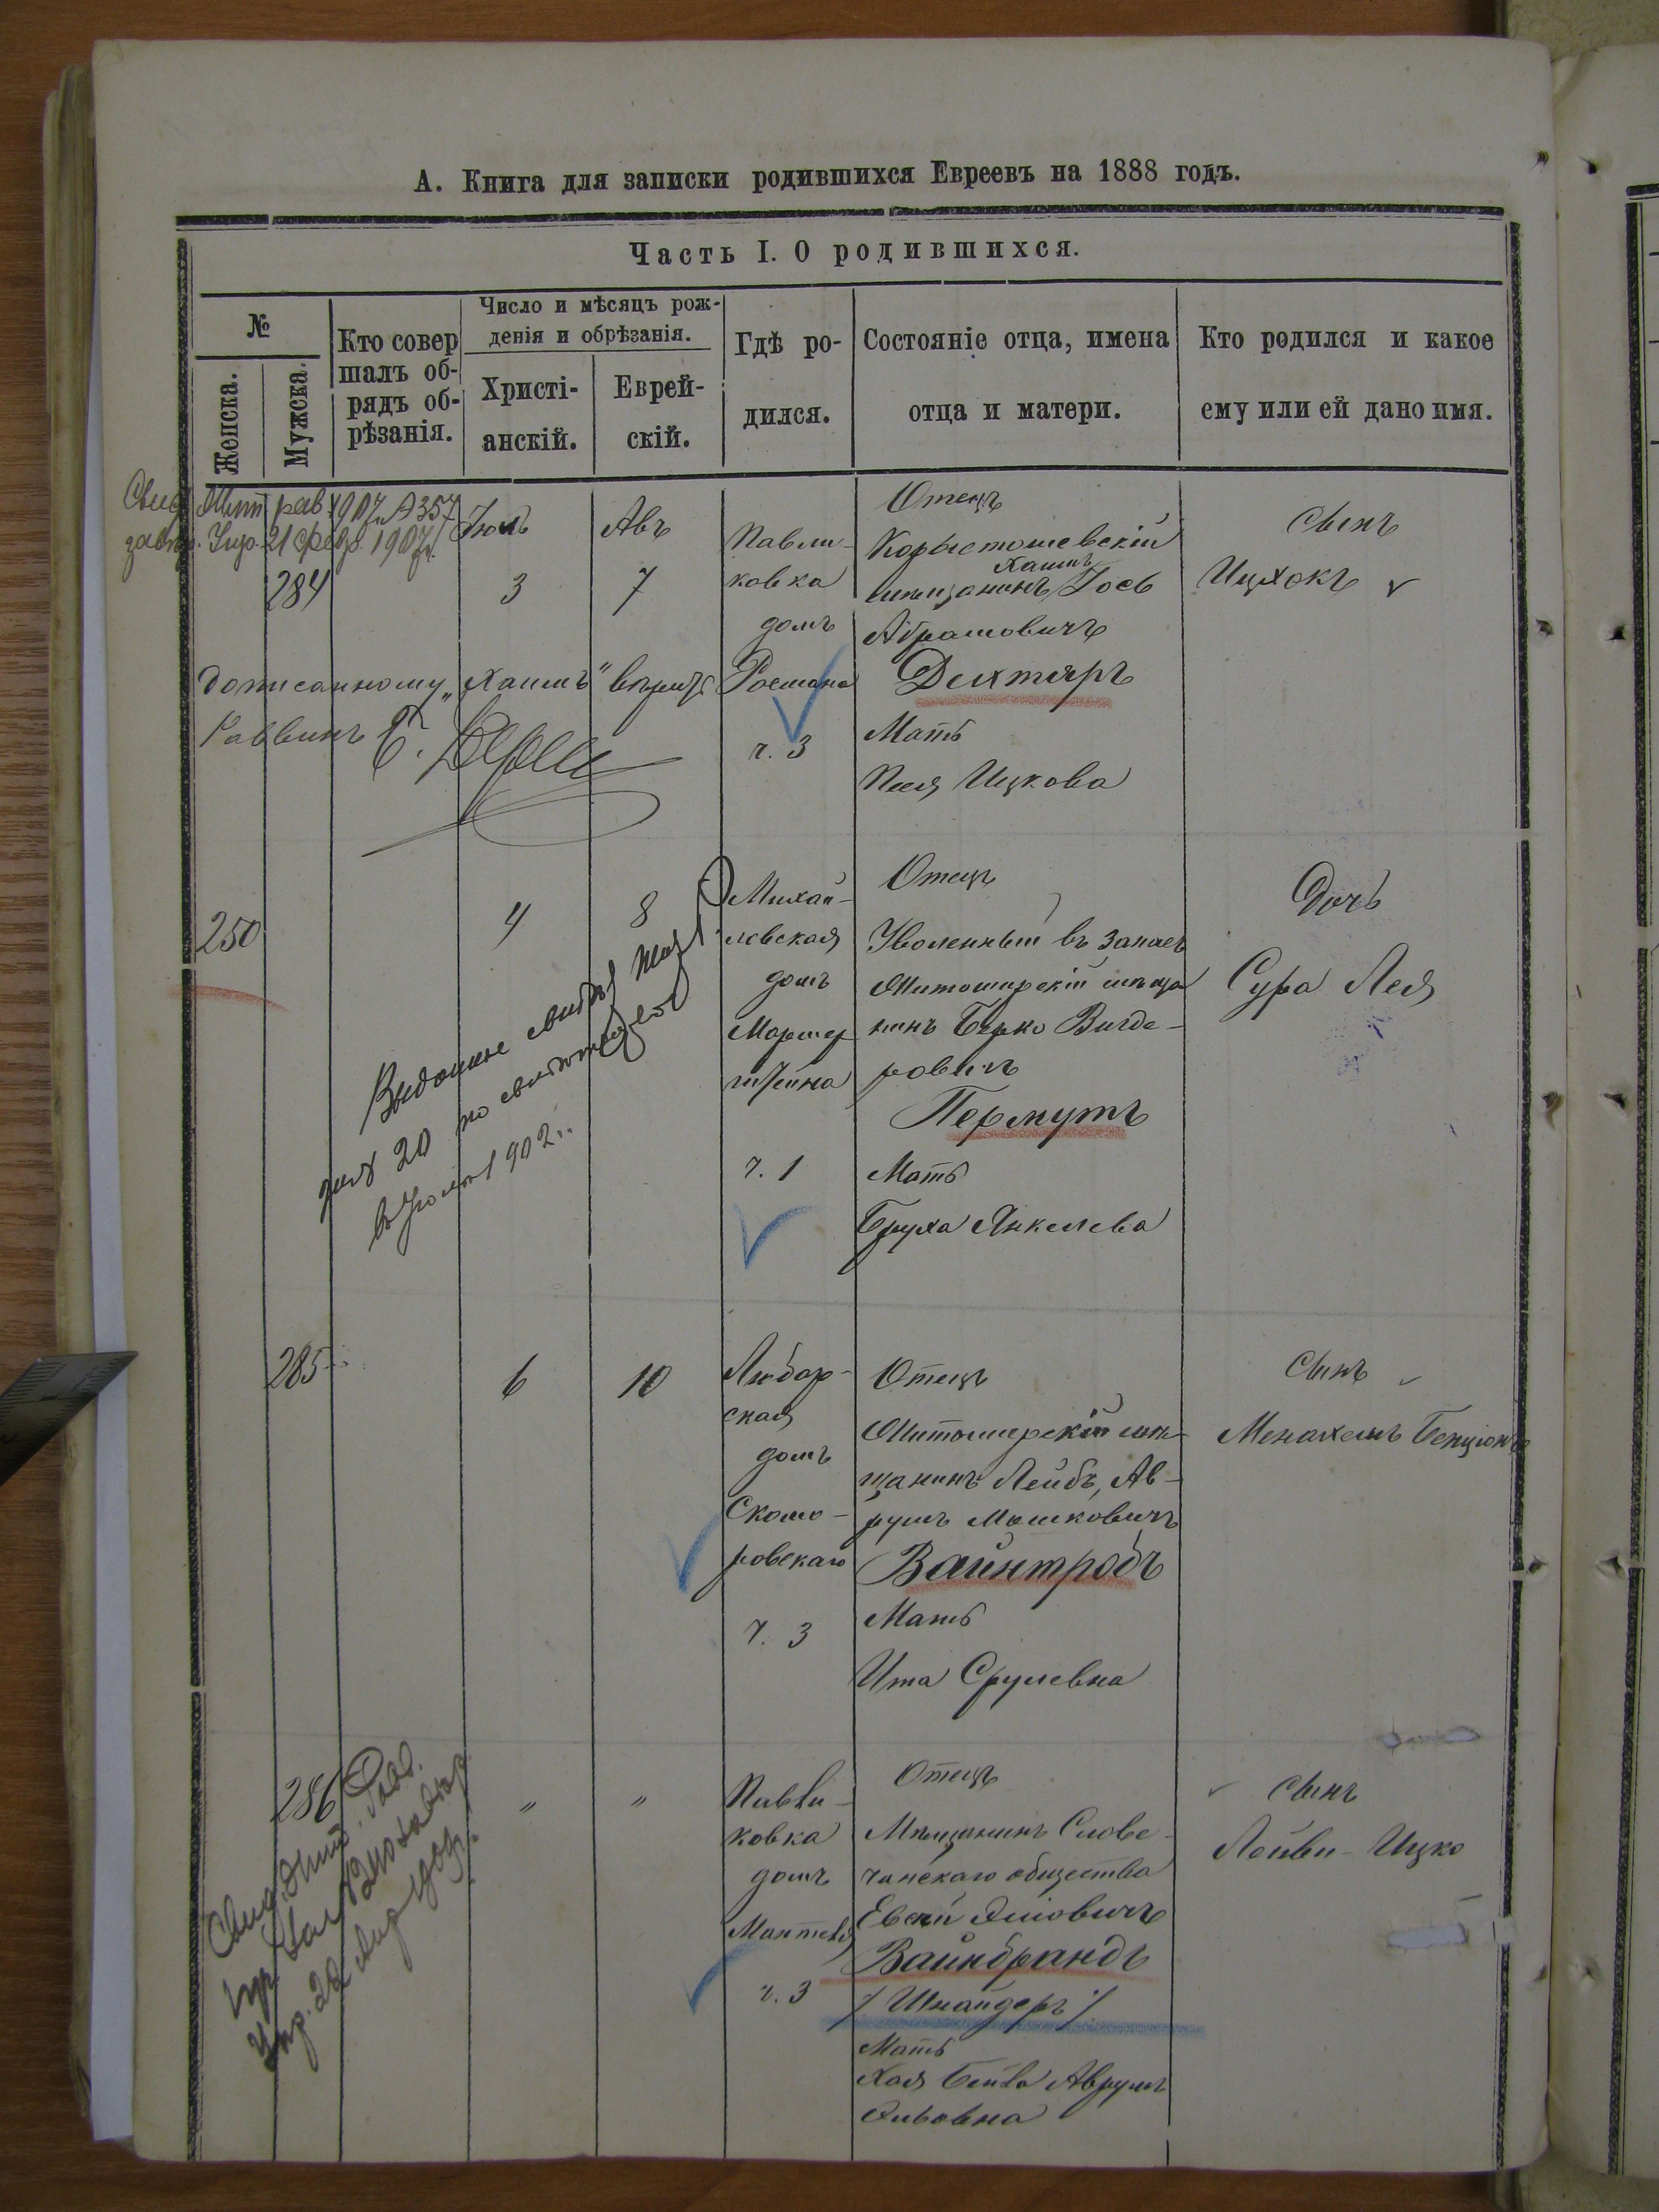 А. Книга для записки родившихся Евреевъ на 1888 годъ.
Часть I. О родившихся.
№
Женска.
Мужска.
Кто совер
шалъ об-
рядъ об-
рѣзанія.
Число и мѣсяцъ рож-
денія и обрѣзанія.
Христі-
анскій.
Еврей-
скій.
Гдѣ ро-
дился.
Состояніе отца, имена
отца и матери.
Кто родился и какое
ему или ей дано имя.
Жит. рав. 1907 № 357
21 1907 г.
284
Дописанному „Хаимъ" вѣрить
Раввинъ
Іюль
3
Авъ
7
Павли-
ковка
домъ
ч. 3
Отецъ
Коростошевскій
Хаимъ
мѣщанинъ Іось
Абрамовичъ
Дехтяръ
Мать
Песя Ицкова
Сынъ
Ицхокъ
250
4
8
Выдание
20 по
1902 г.
Михай-
ловская
домъ
ч. 1
Отецъ
Уволенный въ запасъ
Житомирскій мѣща
нинъ Берко Вигде-
ровичъ
Пермутъ
Мать
Бруха Янкелева
Дочь
Сура Лея
285
6
10
Любар-
ская
домъ
Скомо-
ровскаго
ч. 3
Отецъ
Житомирскій мѣ-
щанинъ Лейбъ, Ав-
румъ Мошковичъ
Вайнтробъ
Мать
Ита Срулевна
Сынъ
Менахемъ Бенціонъ
286
"
"
Павли-
ковка
домъ
ч. 3
Отецъ
Мѣщанинъ Слове-
чанскаго общества
Евсей
Вайнбрандъ
/Шнайдеръ/
Мать
Хая Бейла Аврумъ
Эльовна
Сынъ
Лейви-Ицко